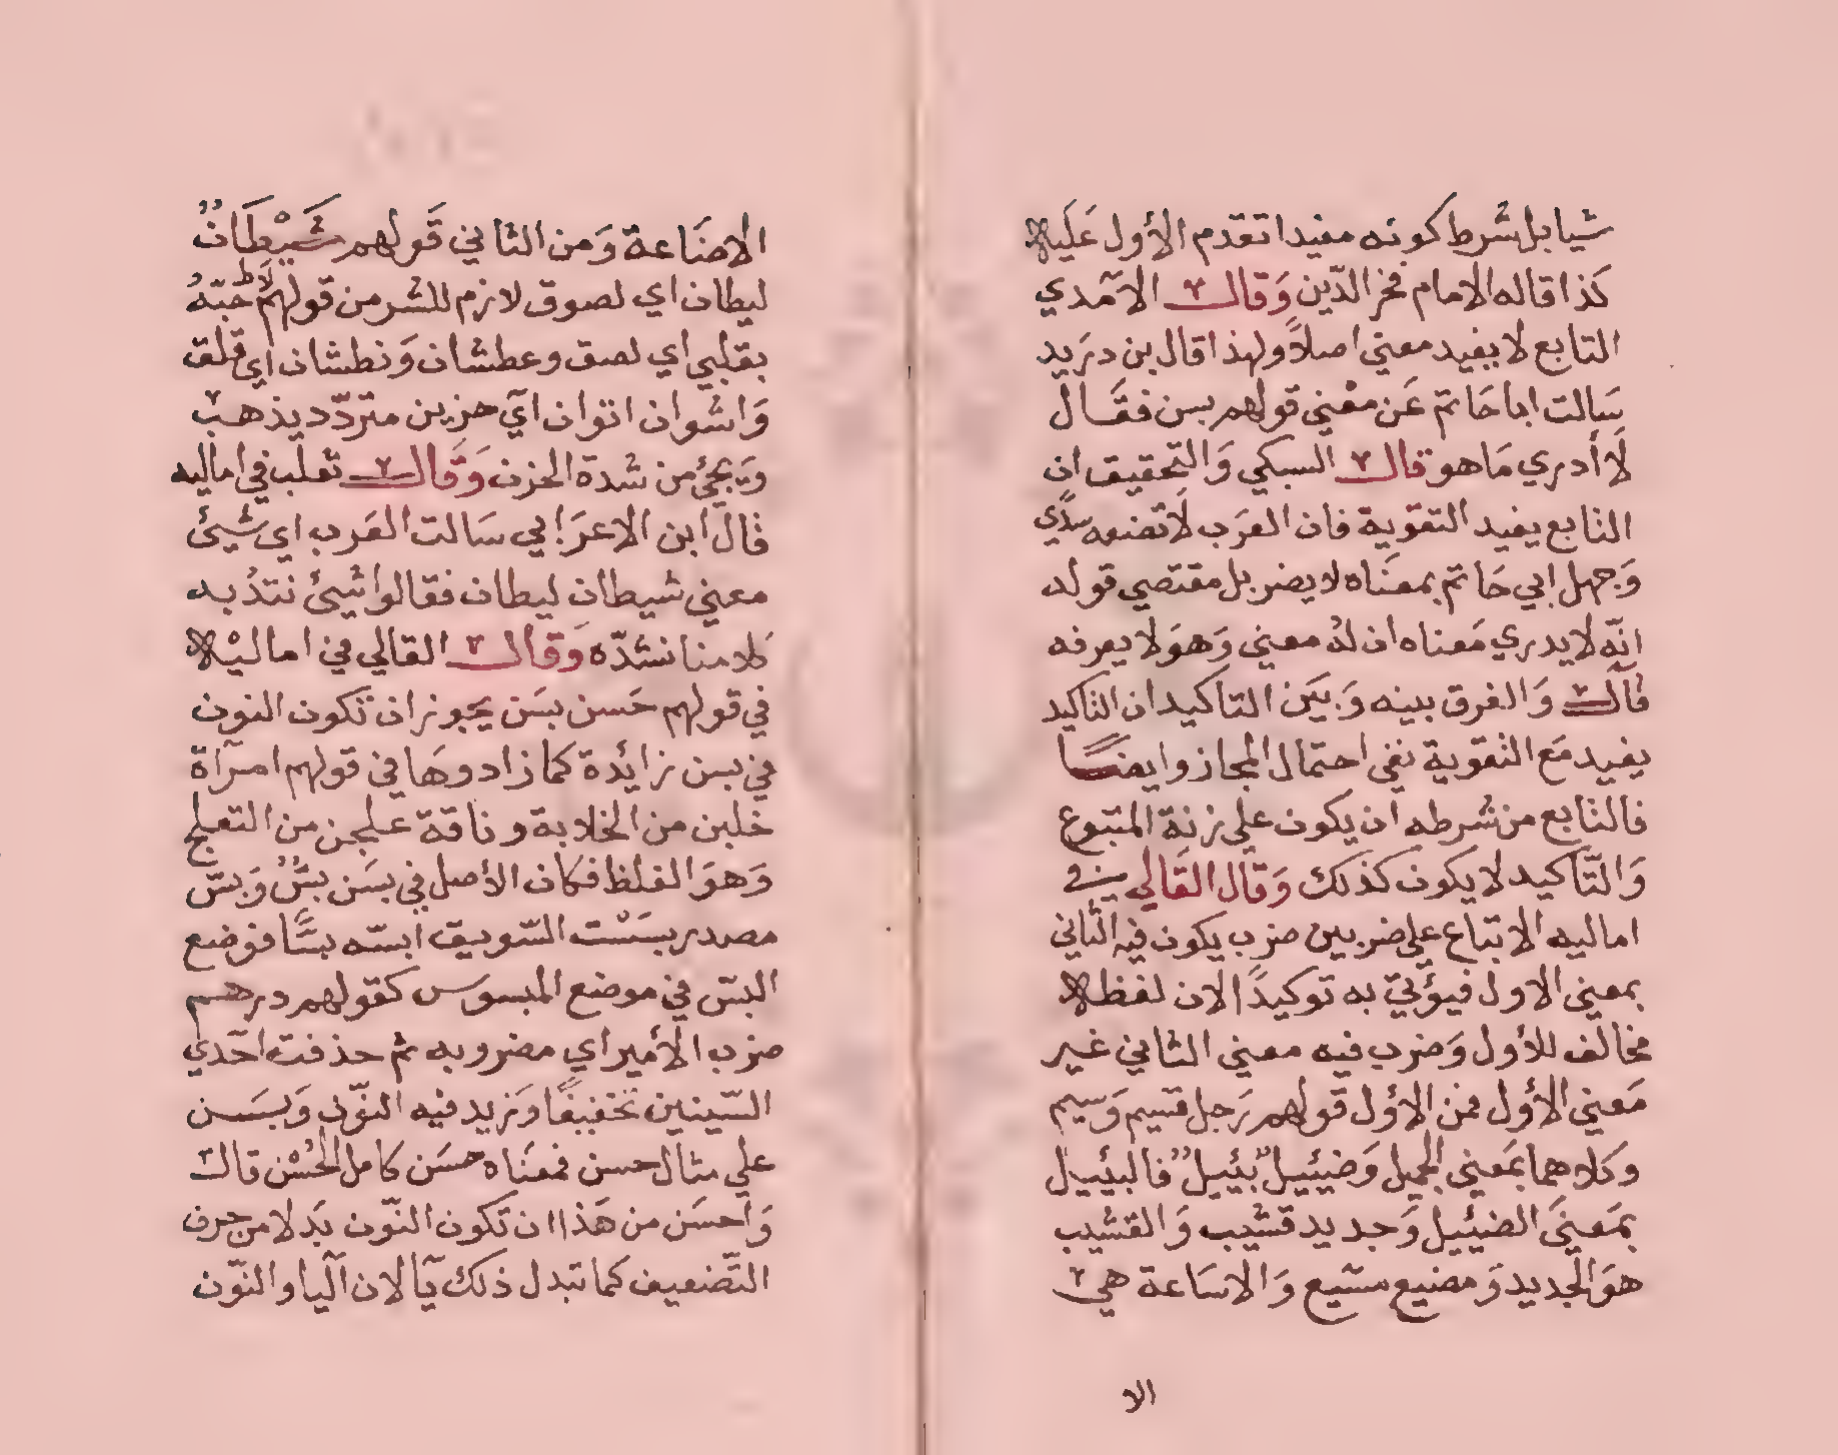 شيا بل شرط كونه مفيدا تقدم الأول عَلَيه
كذا قاله الامام فخر الدّين وَقال الآمدي
التابع لا يفيد معني اصلاً ولهذا قال بن دريد
سَالت ابا حَاتم عَن معْني قولهم بسن فقَال
لَا أدري مَا هو قال السبكي وَالتحقيق ان
التابع يفيد التقوية فان العَرَب لَا تضعه سدًي
وَجهل ابي حَاتم بمعنَاه لا يضر بل مقتضي قوله
انّه لا يدري مَعناه ان لهُ معني وَهوَ لا يعرفه
قال وَالفرق بينه وَبيَن التاكيد ان التاكيد
يفيد مَع التقوية نفي احتمال المجاز وايضًا
فالتابع من شرطه ان يكون علي زنة المتبوع
وَالتّاكيد لا يكون كذلك وَقال القَالي في
اماليه الاتباع علي ضربين ضرب يكون فيه الثاني
بمعني الاول فيؤتيّ به توكيدًا لان لفظه
مخالف للأول وَضرب فيه معني الثاني غير
مَعني الأول فمن الأول قولهم رَجل قسيم وَسيم
وكلاهما بمَعني الجميل وَضئييل بئييل فالبئييل
بمَعنيَ الضئييل وَجديد قشيب وَالقشيب
هوَ الجديد وَمضيع مسيع وَالاسَاعة هي
الا
الاضَاعة وَمن الثاني قَولهم شَيْطَانٌ
ليطان اي لصوق لازم للشر من قولهم لَاط حُبّهُ
بقلبي اي لصق وعطشان وَنطشان اي قلق
وَاشوان اتوان اي حزين متردّد يذهب
وَيَجيُ من شدة الحزن وَقَال ثعلب في اماليه
قال ابن الاعرَابي سَالت العَرب اي شيئ
معني شيطان ليطان فقالوا شيئ نتدُ به
كلامنا نشدّه وَقال القالي في اماليْه
في قولهم حَسن بسَن يجوز ان تكون النون
في بسن زايئدة كما زادوهَا في قولهم امرآة
خلبن من الخلابة وناقة علجن من التعلج
وَهوَ الغلظ فكان الأصل في بسَن بسٌّ وَبسّ
مصدر بسَسْت السّويق ابسّه بسًّا فوضع
البسّ في موضع المبسوس كقولهم درهم
ضرب الأمير اي مضروبه ثم حذفت احّدي
السّينين تخفيفًا وَزيد فيه النوّن وَبسَن
علي مثال حسن فمعنَاه حسَن كامل الحُسْن قال
وَاحسَن من هَذا ان تكون النوّن بدَلا من حرف
التّضعيف كما تبدل ذلك يَآ لان اليا والنوّن